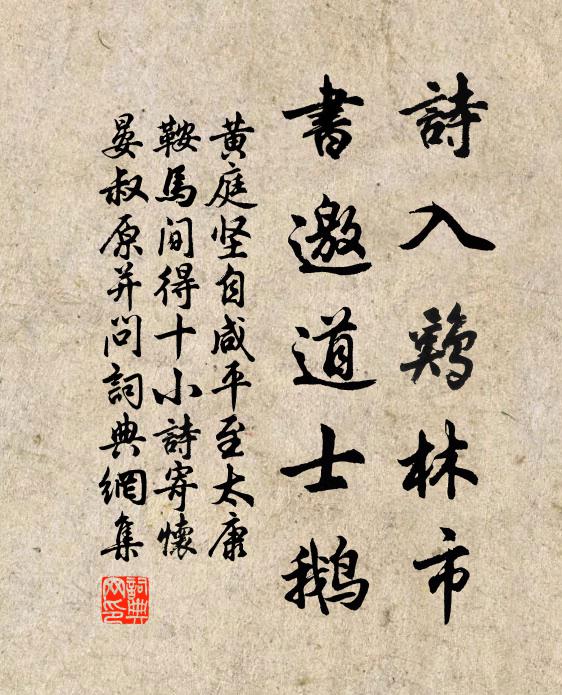 詩入鷄林市
書邀道士鵝
黄庭坚自咸平至太康
鞍馬间得十小詩寄懷
晏叔原并问詞典網集
詞典网印